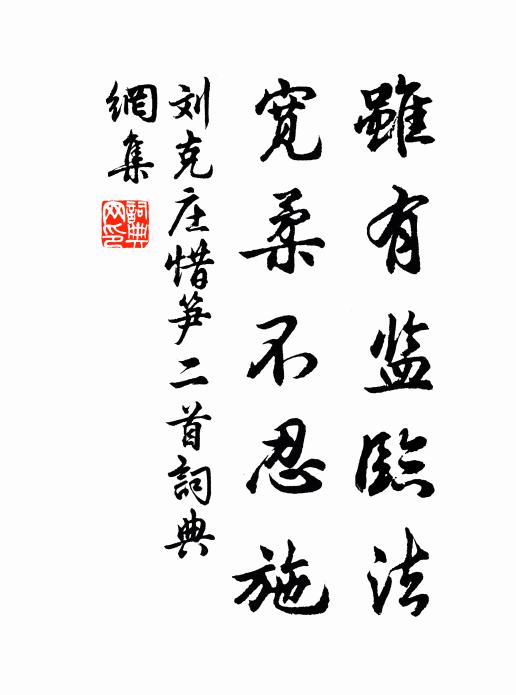 雖有监臨法
寬柔不忍施
刘克庄惜笋二首詞典
網集
詞典
网印